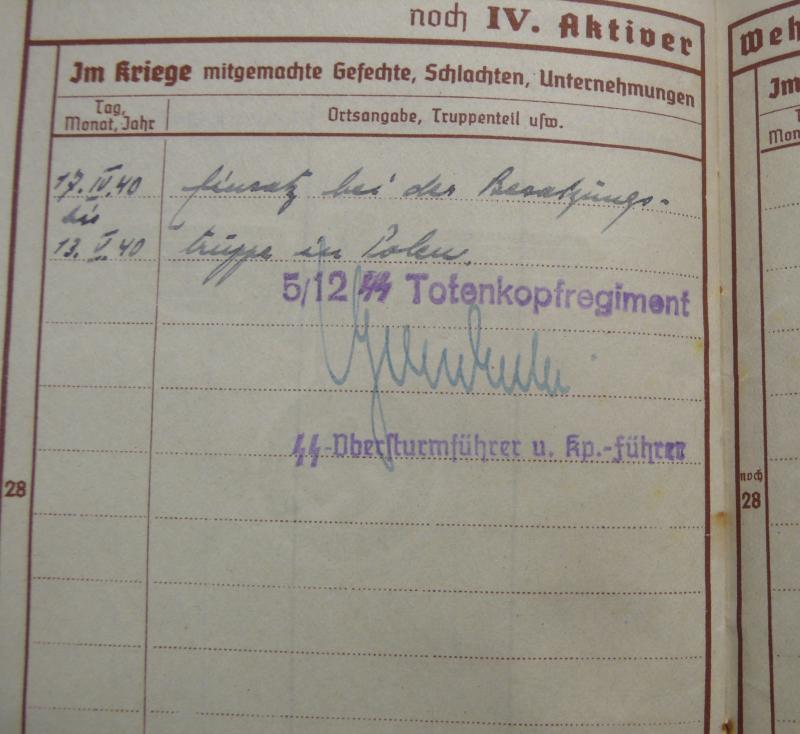 noch IV. Aktiver
Im Kriege mitgemachte Gefechte, Schlachten, Unternehmungen
Tag,
Monat, Jahr
Ortsangabe, Truppenteil usw.
17.IV.40 Einsatz bei der Besatzungs-
bis
13.V.40 truppe in Polen.
5/12 SS Totenkopfregiment
SS-Obersturmführer u. Kp.-führer
28
Weh
Im
Mon
noch
28